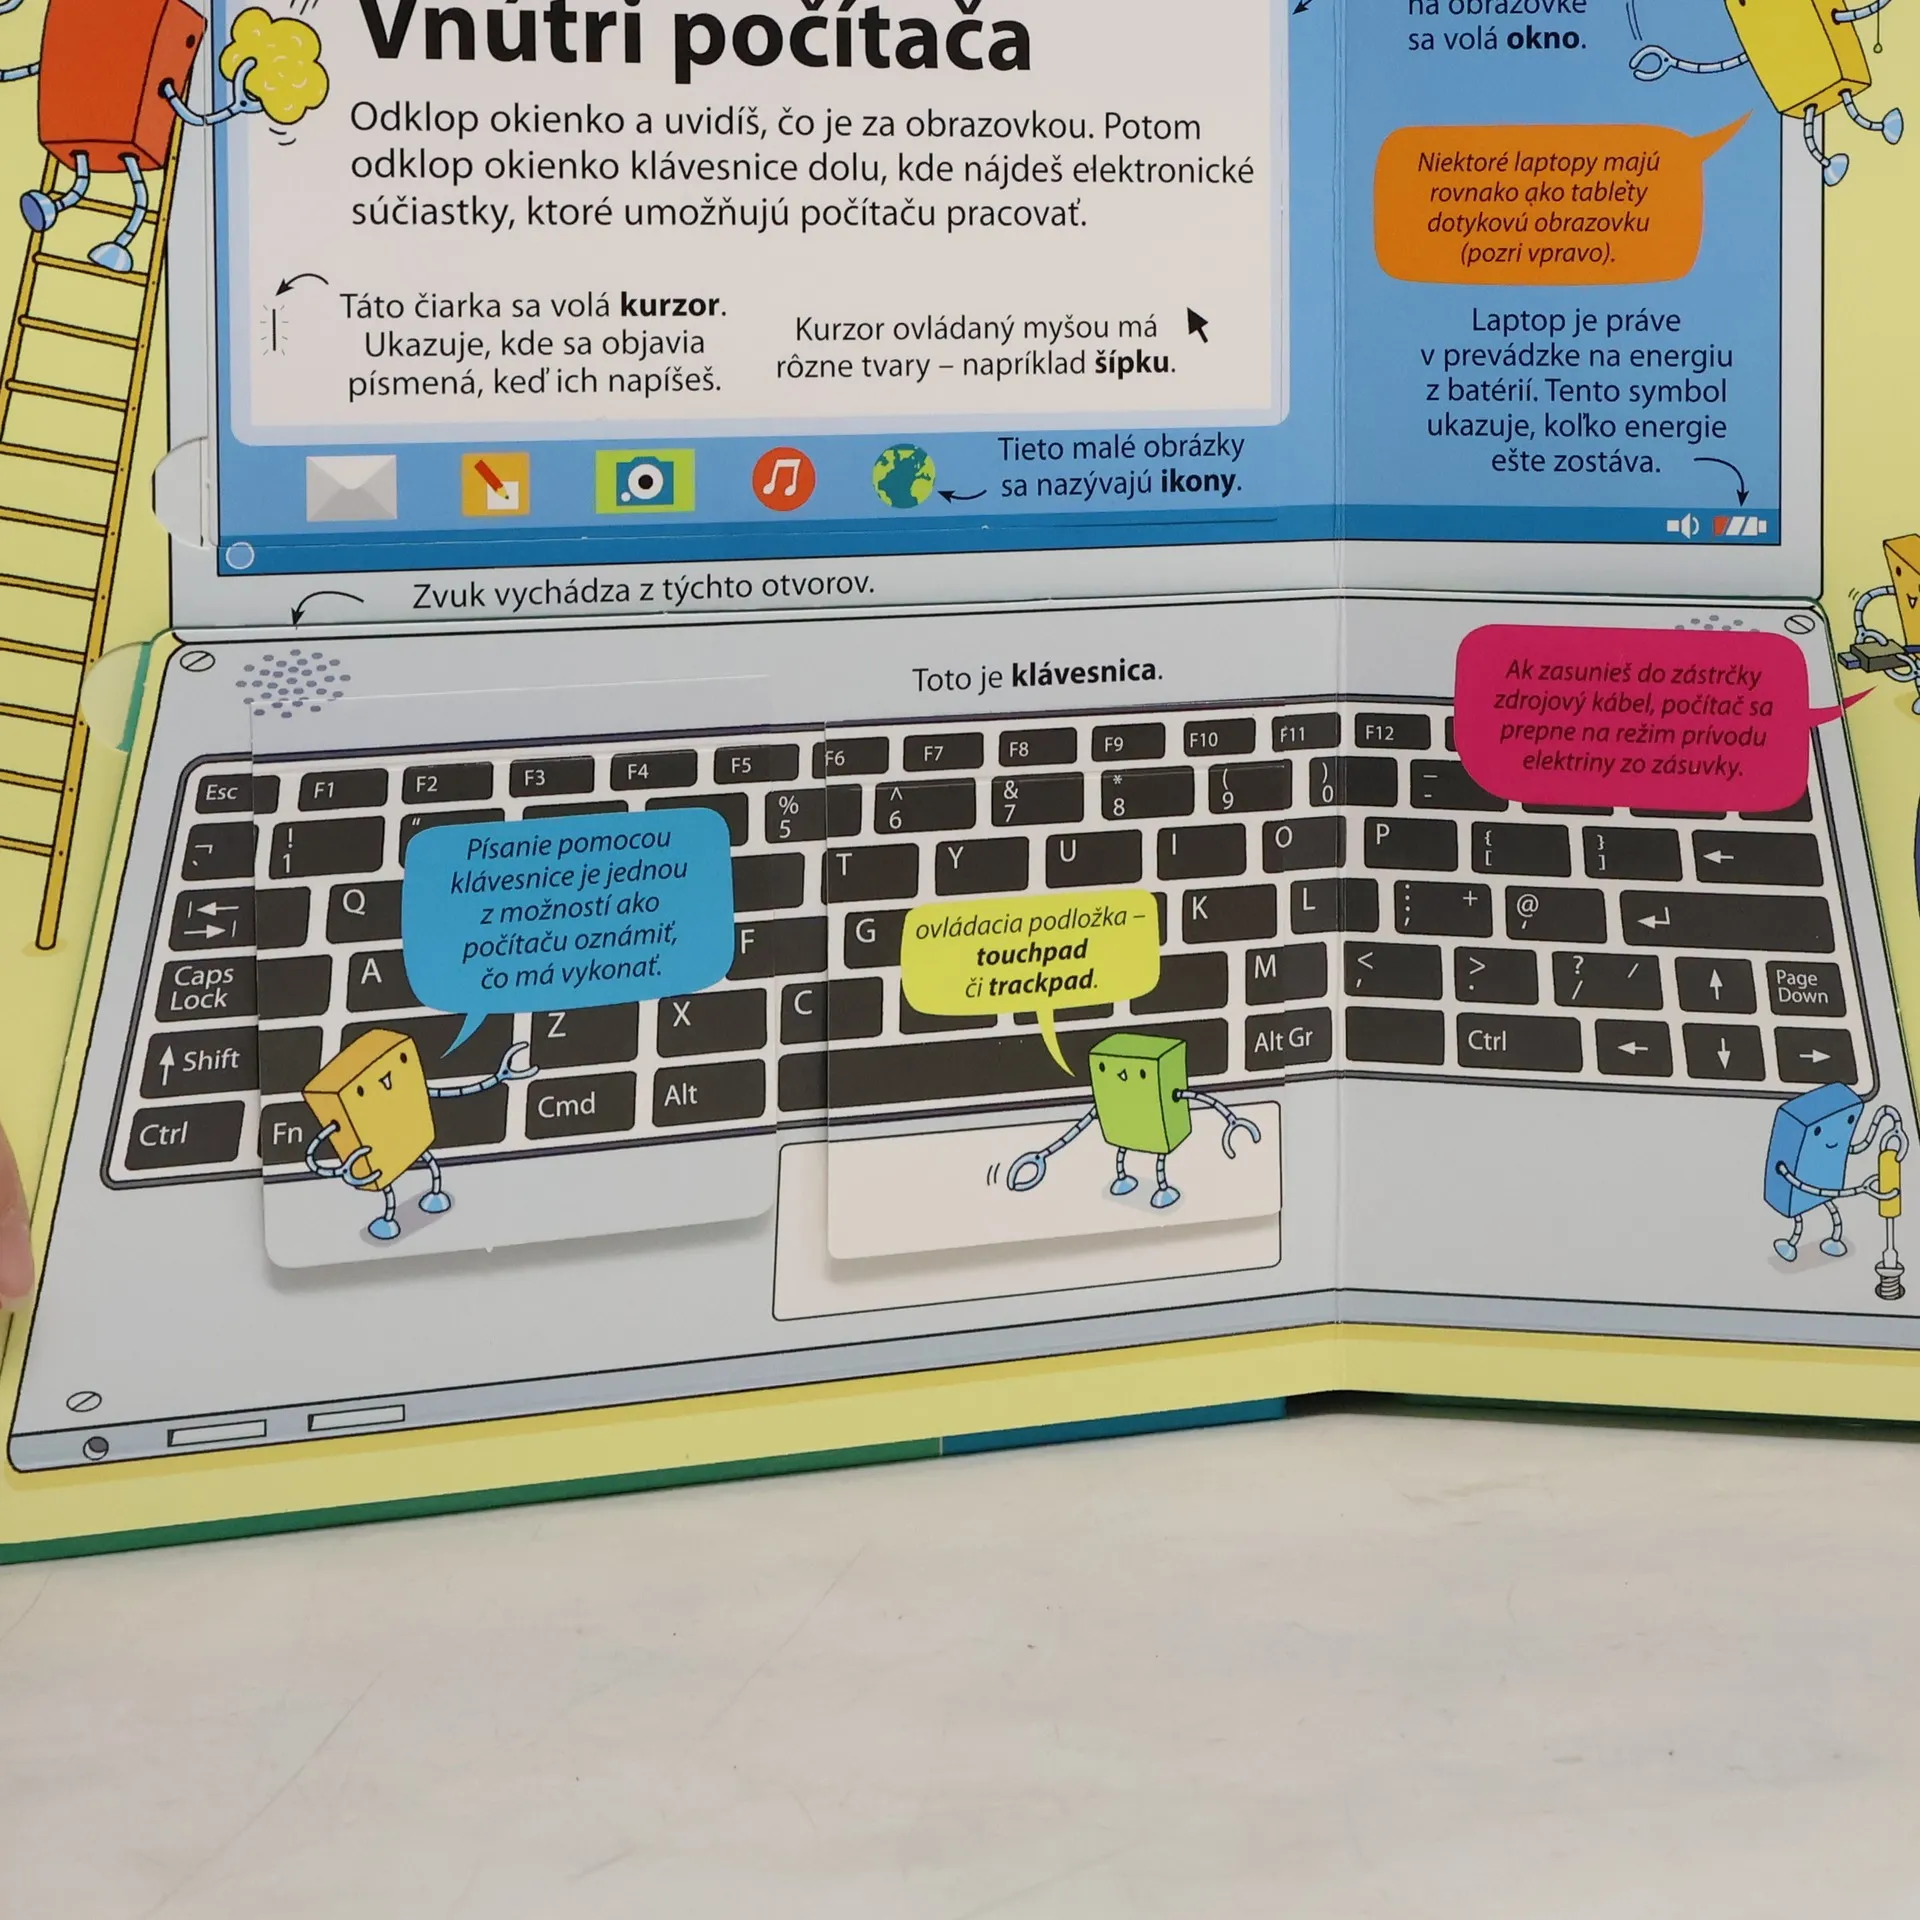 Vnútri počítača
Odklop okienko a uvidíš, čo je za obrazovkou. Potom
odklop okienko klávesnice dolu, kde nájdeš elektronické
súčiastky, ktoré umožňujú počítaču pracovať.
Táto čiarka sa volá kurzor.
Ukazuje, kde sa objavia
písmená, keď ich napíšeš.
Kurzor ovládaný myšou má
rôzne tvary – napríklad šípku.
Tieto malé obrázky
sa nazývajú ikony.
na obrazovke
sa volá okno.
Niektoré laptopy majú
rovnako ako tablety
dotykovú obrazovku
(pozri vpravo).
Laptop je práve
v prevádzke na energiu
z batérií. Tento symbol
ukazuje, koľko energie
ešte zostáva.
Zvuk vychádza z týchto otvorov.
Toto je klávesnica.
Ak zasunieš do zástrčky
zdrojový kábel, počítač sa
prepne na režim prívodu
elektriny zo zásuvky.
Esc F1 F2 F3 F4 F5 F6 F7 F8 F9 F10 F11 F12
¬ ! 1 " % 5 ^ 6 & 7 * 8 ( 9 ) 0 _ -
Q T Y U I O P { [ } ] ←
Caps Lock A F G K L : ; + @ ' ↵
↑ Shift Z X C M < , > . ? / / ↑ Page Down
Ctrl Fn Cmd Alt Alt Gr Ctrl ← ↓ →
Písanie pomocou
klávesnice je jednou
z možností ako
počítaču oznámiť,
čo má vykonať.
ovládacia podložka –
touchpad
či trackpad.